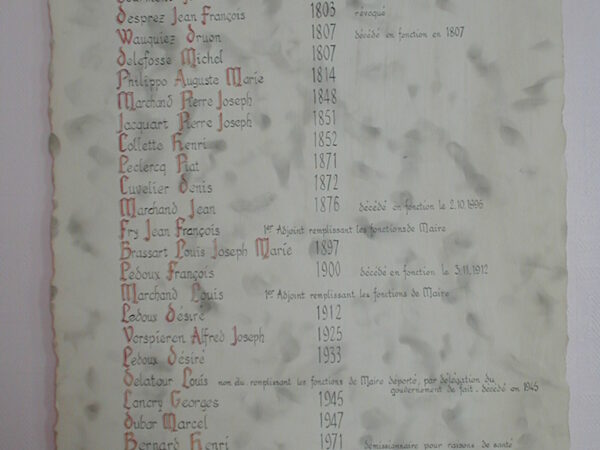 Desprez Jean François 1803 révoqué
Wauquiez Druon 1807 décédé en fonction en 1807
Delefosse Michel 1807
Philippo Auguste Marie 1814
Marchand Pierre Joseph 1848
Jacquart Pierre Joseph 1851
Collette Henri 1852
Leclercq Piat 1871
Cuvelier Denis 1872
Marchand Jean 1876 décédé en fonction le 2.10.1996
Fry Jean François 1er Adjoint remplissant les fonctions de Maire
Brassart Louis Joseph Marie 1897
Ledoux François 1900 décédé en fonction le 3.11.1912
Marchand Louis 1er Adjoint remplissant les fonctions de Maire
Ledoux Désiré 1912
Verspieren Alfred Joseph 1925
Ledoux Désiré 1933
Delatour Louis non élu remplissant les fonctions de Maire déporté, par délégation du
gouvernement de fait, décédé en 1945
Lancry Georges 1945
Dubar Marcel 1947
Bernard Henri 1971 démissionnaire pour raisons de santé